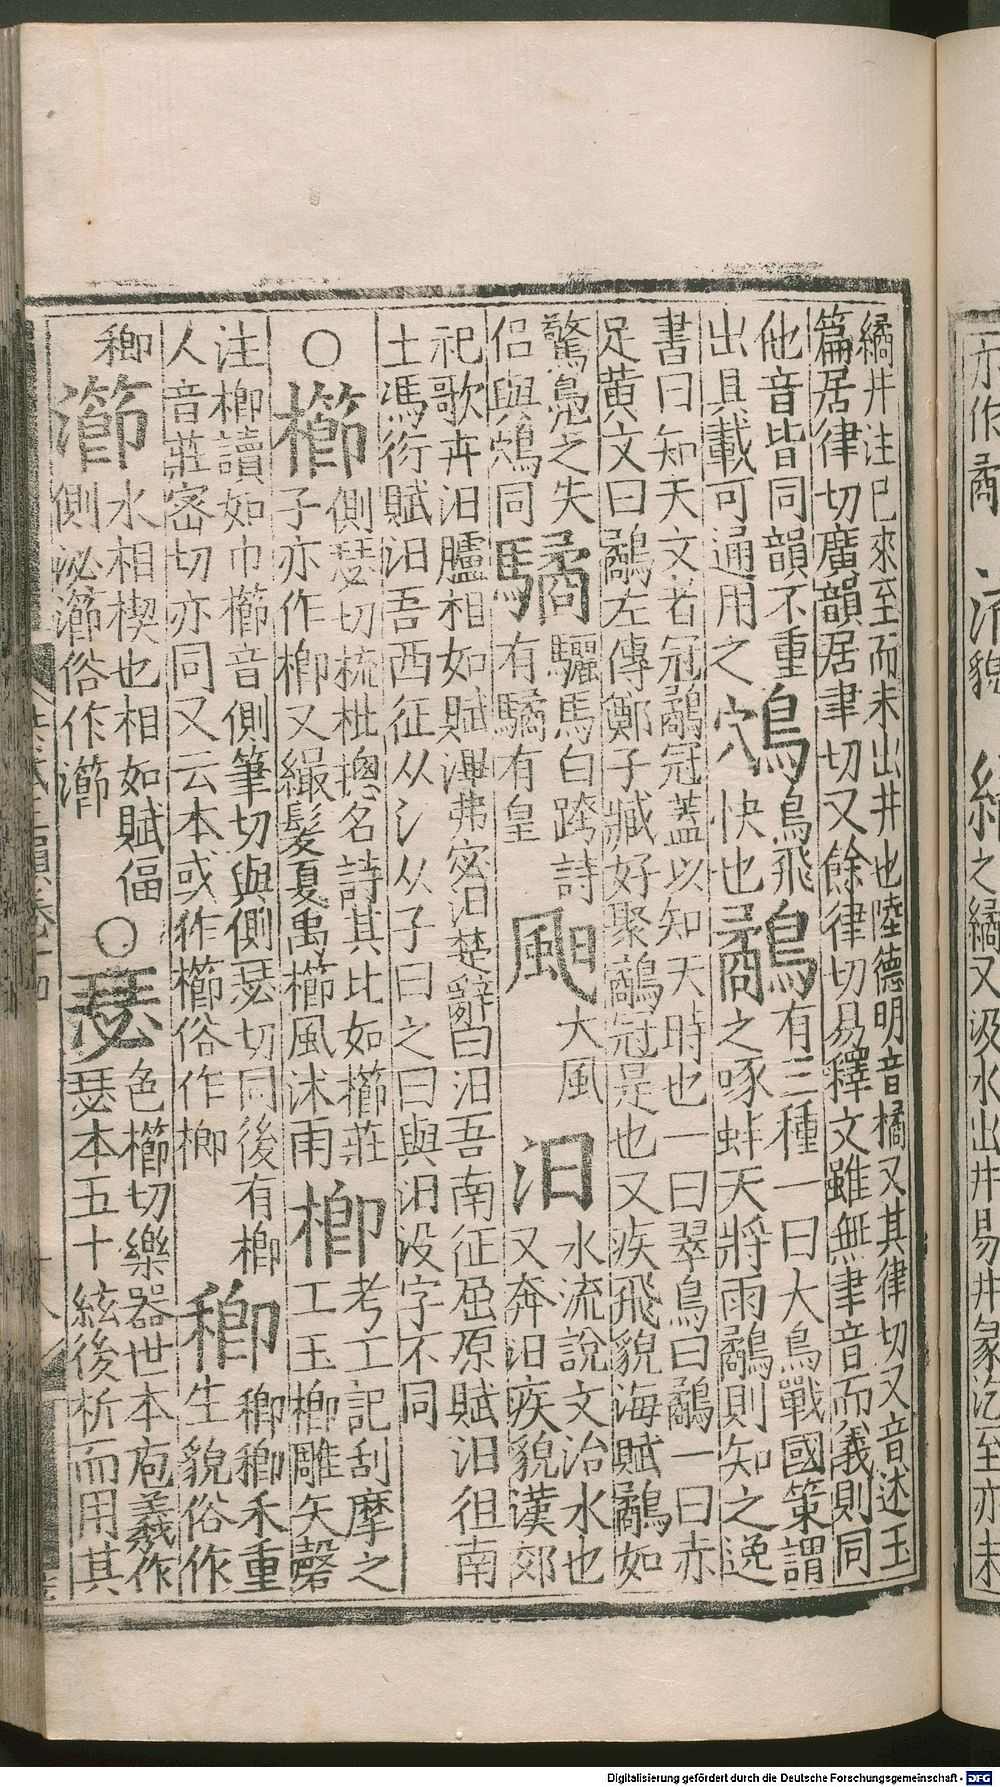 繘井注巳來至而未出井也陸德明音橘又其律切又音述玉
篇居律切廣韻居聿切又餘律切易釋文雖無聿音而義則同
他音皆同韻不重
出具載可通用之
鴥
鳥飛
快也
鷸
有三種一曰大鳥戰國策謂
之啄蚌天將雨鷸則知之逸
書曰知天文者冠鷸冠蓋以知天時也一曰翠鳥曰鷸一曰赤
足黄文曰鷸左傳鄭子臧好聚鷸冠是也又疾飛貌海賦鷸如
驚鳬之失
侣與鴥同
驈
驪馬白跨詩
有驈有皇
䬍
大風
汨
水流說文治水也
又奔汨疾貌漢郊
祀歌卉汨臚相如賦滭弗宓汨楚辭曰汨吾南征屈原賦汨徂南
土馮衍賦汨吾西征从氵从子曰之曰與汨没字不同
○櫛
側瑟切梳枇揔名詩其比如櫛莊
子亦作楖又髮夏禹櫛風沐雨
楖
考工記刮摩之
工玉楖雕矢磬
注楖讀如巾櫛音側筆切與側瑟切同後有楖
人音莊密切亦同又云本或作櫛俗作楖
禾重
生貌俗作
瀄
水相楔也相如賦偪
側泌瀄俗作
○瑟
色櫛切樂器世本庖羲作
瑟本五十絃後析而用其
Digitalisierung gefördert durch die Deutsche Forschungsgemeinschaft - DFG